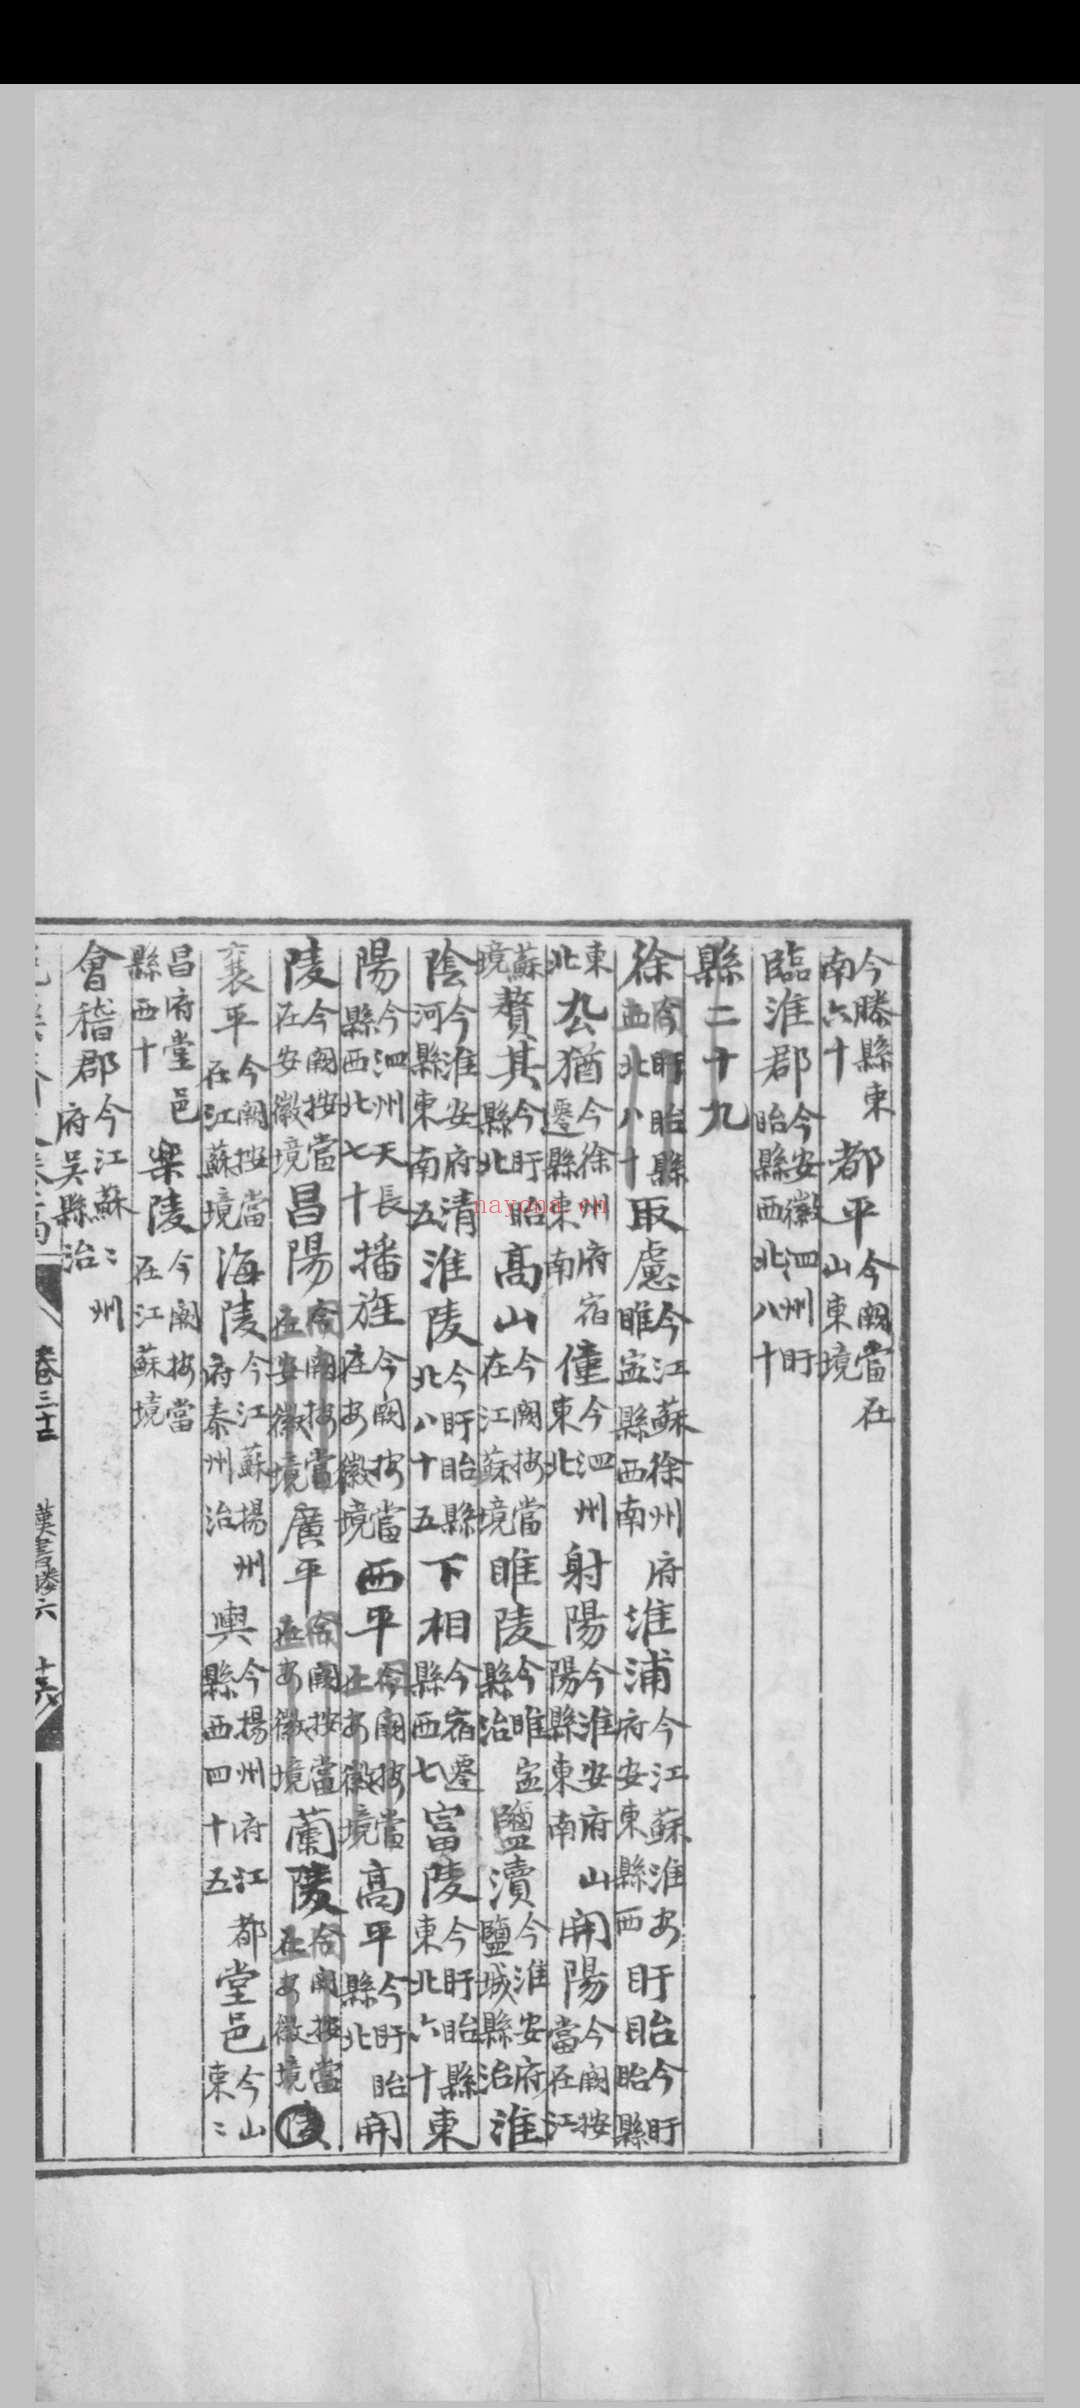 今滕縣東南六十都平今闕當在山東境
臨淮郡今安徽泗州盱眙縣西北八十
縣二十九
徐今盱眙縣西北八十取慮今江蘇徐州府睢寍縣西南淮浦今江蘇淮安府安東縣西盱眙今盱眙縣
東北厹猶今徐州府宿遷縣東南僮今泗州東北射陽今淮安府山陽縣東南開陽今闕按當在江
蘇境贅其今盱眙縣北高山今闕按當在江蘇境睢陵今睢寍縣治鹽瀆今淮安府鹽城縣治淮
陰今淮安府清河縣東南五淮陵今盱眙縣北八十五下相今宿遷縣西七富陵今盱眙縣東北六十東
陽今泗州天長縣西北七十播旌今闕按當在安徽境西平今闕按當在安徽境高平今盱眙縣北開
陵今闕按當在安徽境昌陽今闕按當在安徽境廣平今闕按當在安徽境蘭陵今闕按當在安徽境
襄平今闕按當在江蘇境海陵今江蘇揚州府泰州治輿今揚州府江都縣西四十五堂邑今山東〻
昌府堂邑縣西十樂陵今闕按當在江蘇境
會稽郡今江蘇〻州府吳縣治
卷三十 漢書 六
nayona.cn